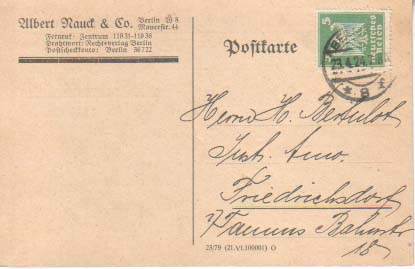 Albert Nauck & Co. Berlin W 8
Mauerstr. 44
Fernruf: Zentrum 11831-11836
Drahtwort: Rechtsverlag Berlin
Postscheckkonto: Berlin 36722
Postkarte
5
Deutsches
Reich
Herrn H. Bertulot
Friedrichsdorf
Taunus Bahnstr
18
23/79 (21.VI.100001) O